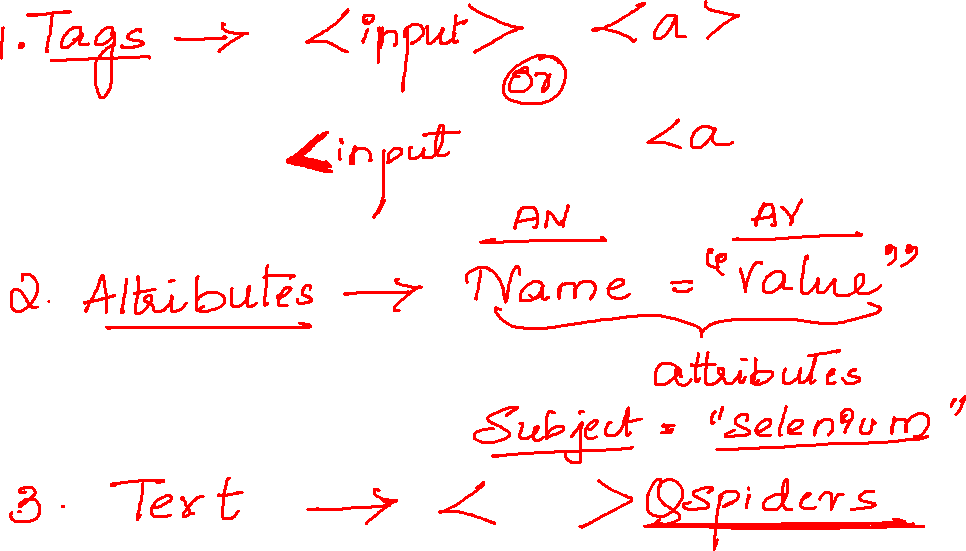 1. Tags → <input> <a>
or
<input <a
AN AV
2. Attributes → Name = "Value"
attributes
Subject = "Selenium"
3. Text → < > Qspiders